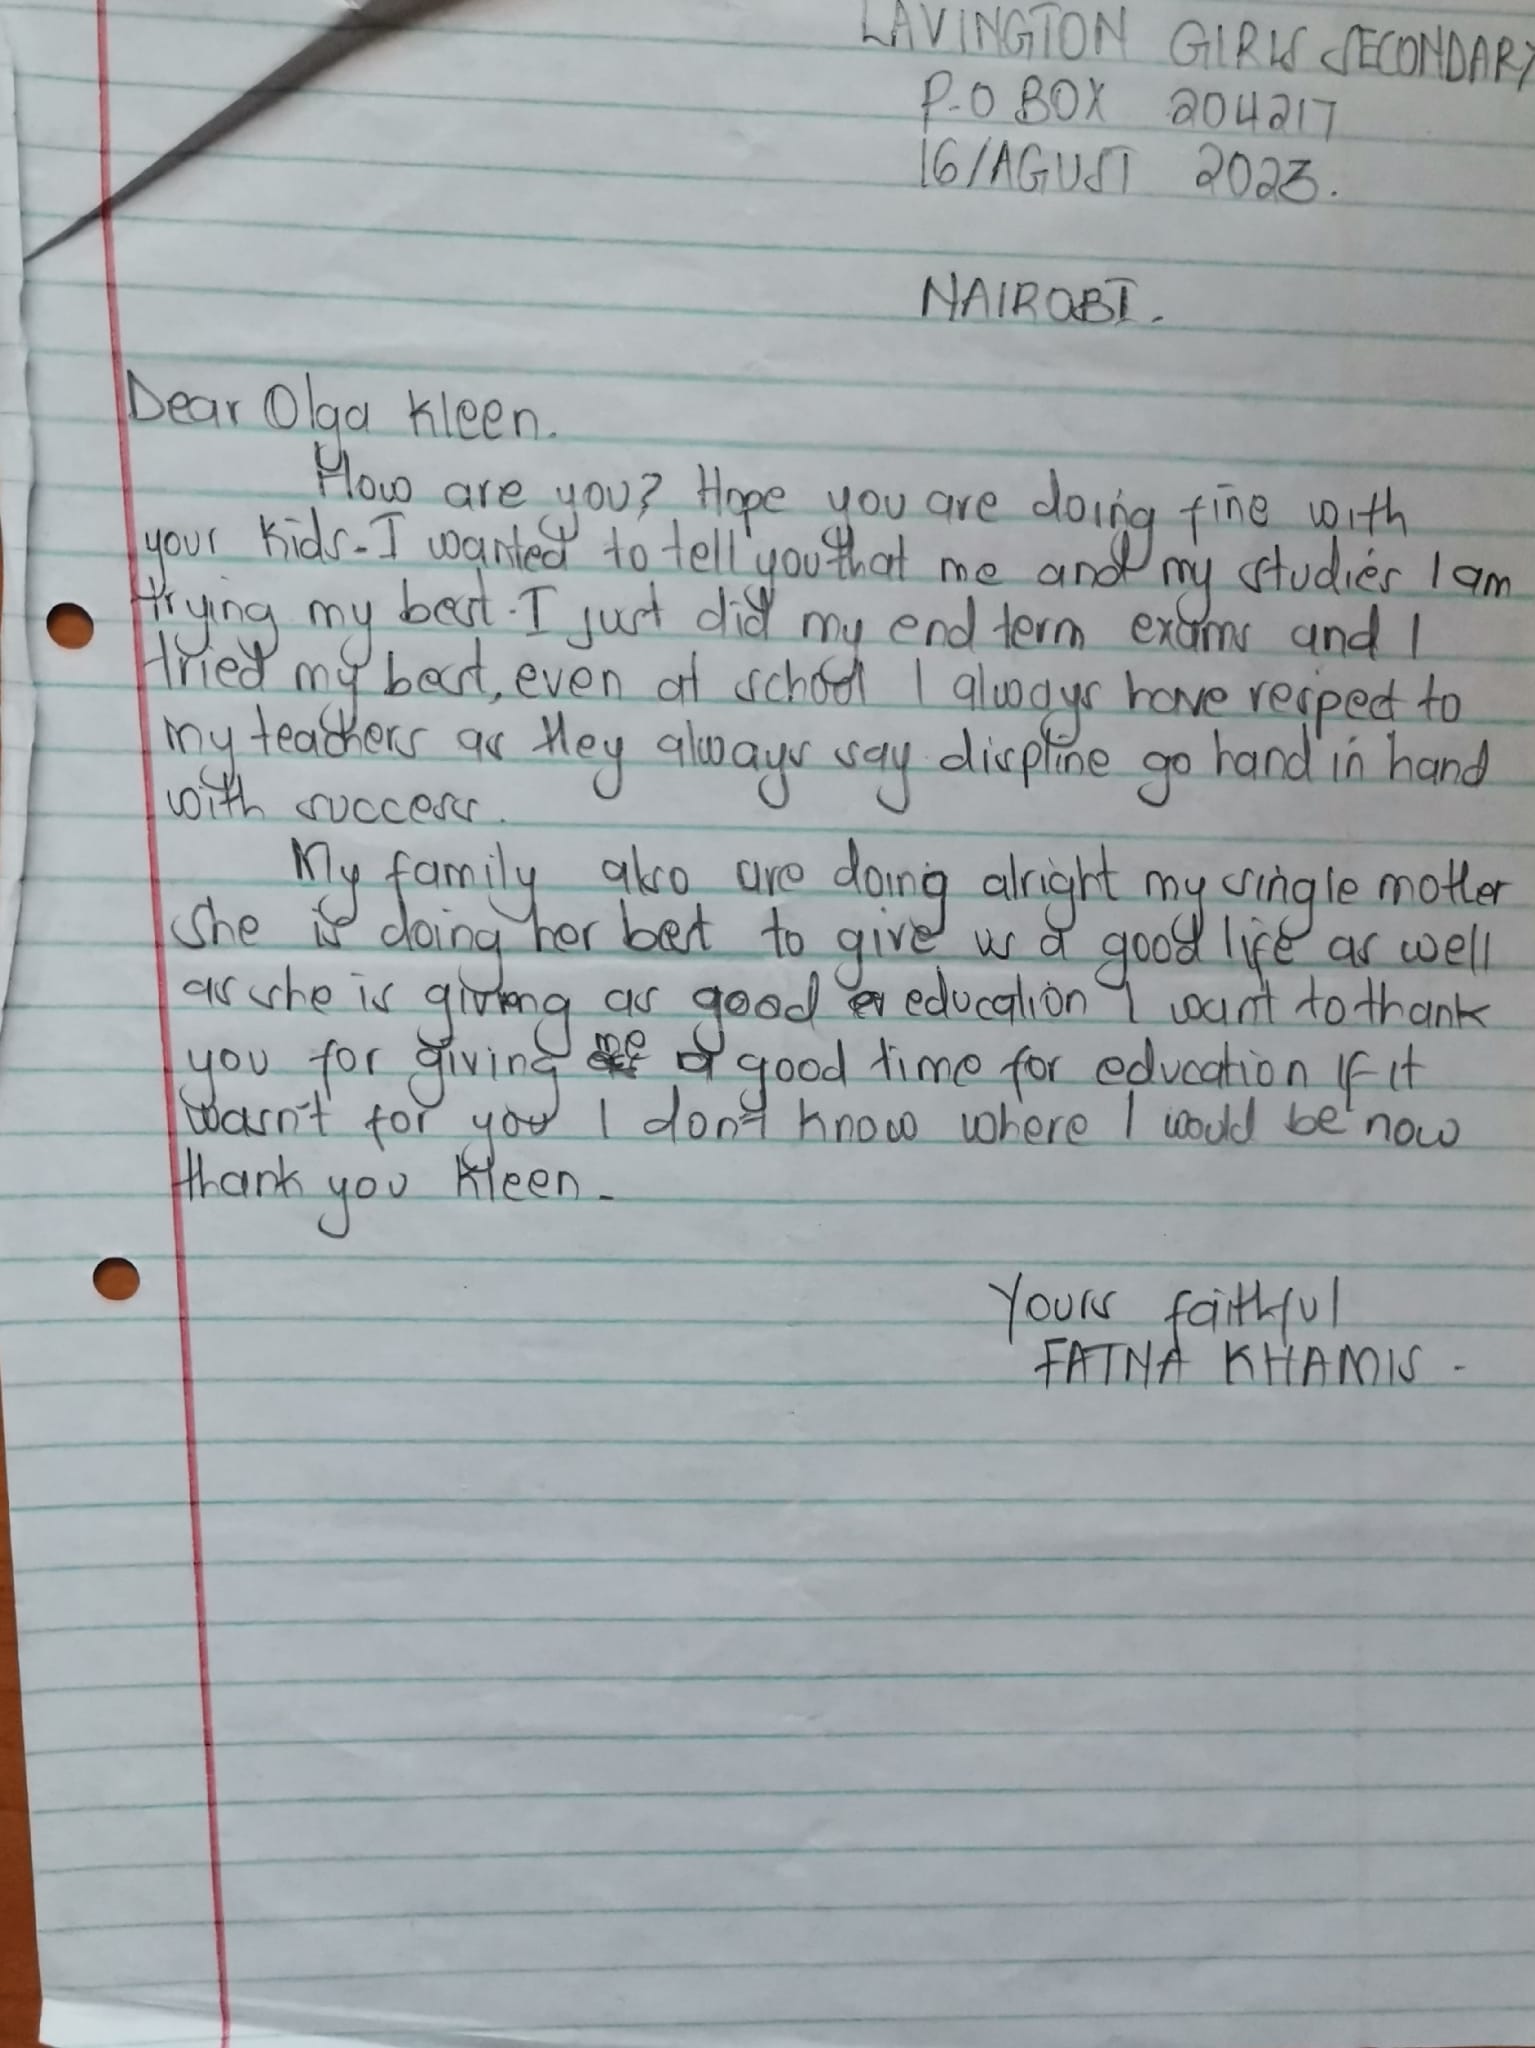 LAVINGTON GIRLS SECONDARY
P.O BOX 204217
16/AGUST 2023.
NAIROBI.
Dear Olga Kleen.
How are you? Hope you are doing fine with
your kids. I wanted to tell you that me and my studies I am
trying my best. I just did my end term exams and I
tried my best, even at school I always have respect to
my teachers as they always say displine go hand in hand
with success.
My family also are doing alright my single mother
She is doing her best to give us a good life as well
as she is giving as good education I want to thank
you for giving me a good time for education If it
wasn't for you I don't know where I would be now
thank you Kleen.
Yours faithful
FATNA KHAMIS.